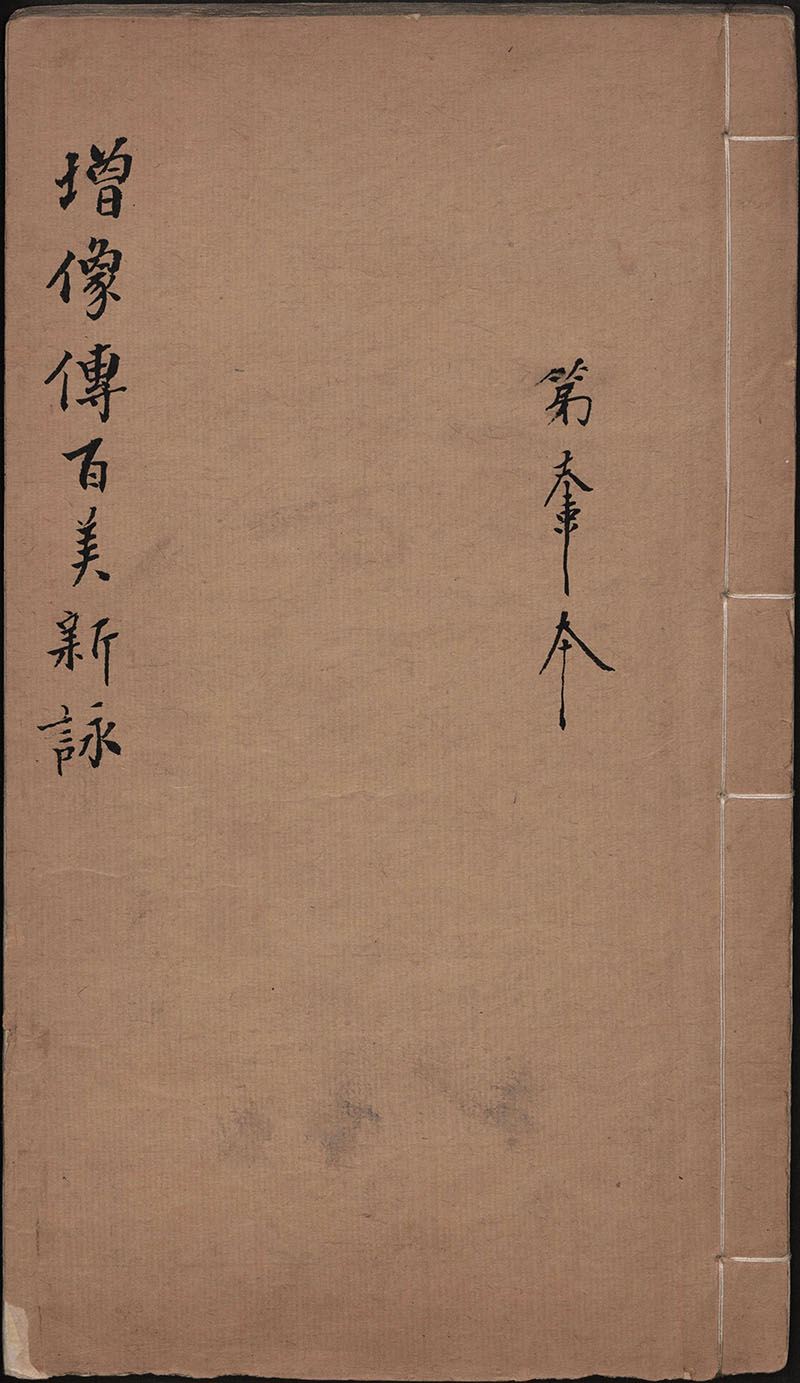 第夲
增像傳百美新詠